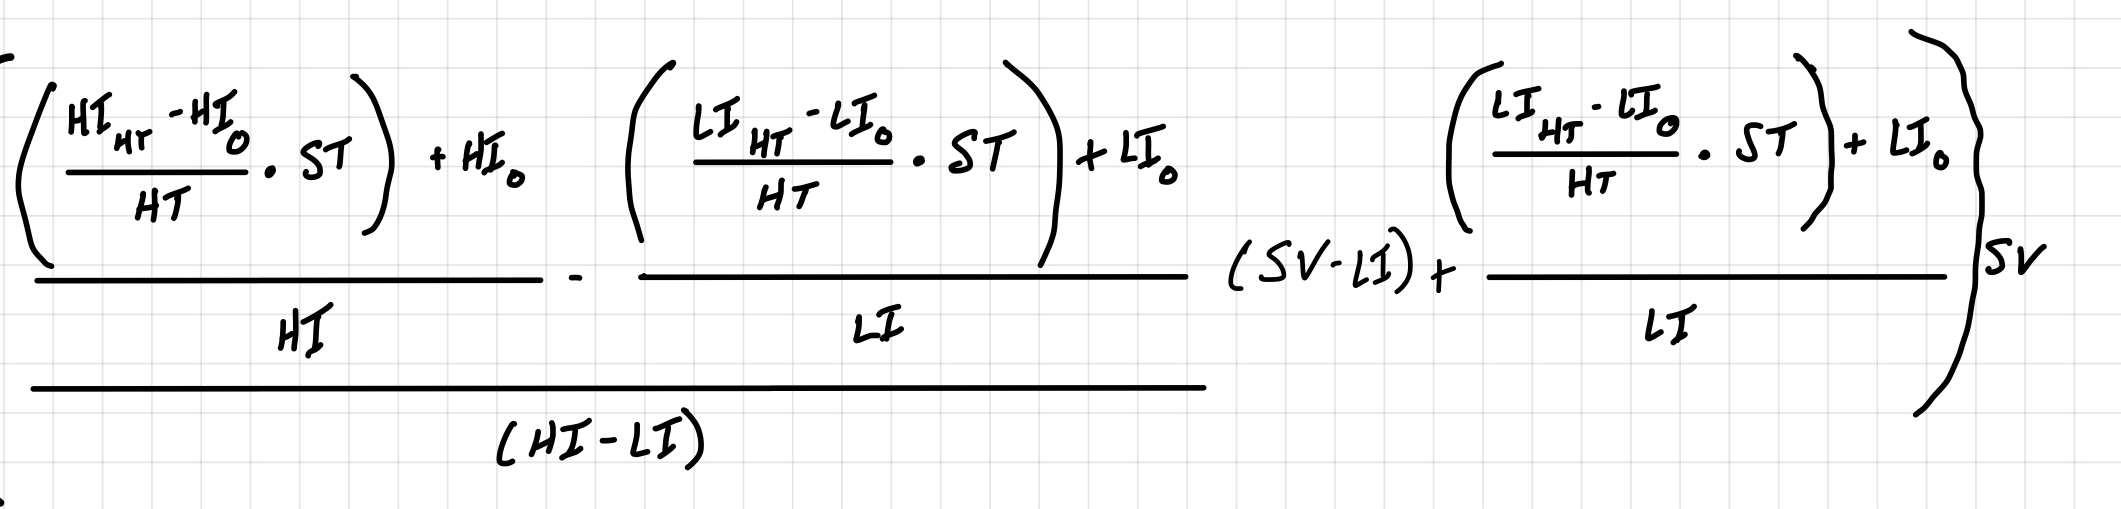 \left( \frac{\frac{\left( \frac{HI_{HT} - HI_0}{HT} \cdot ST \right) + HI_0}{HI} - \frac{\left( \frac{LI_{HT} - LI_0}{HT} \cdot ST \right) + LI_0}{LI}}{(HI - LI)} (SV - LI) + \frac{\left( \frac{LI_{HT} - LI_0}{HT} \cdot ST \right) + LI_0}{LI} \right) SV